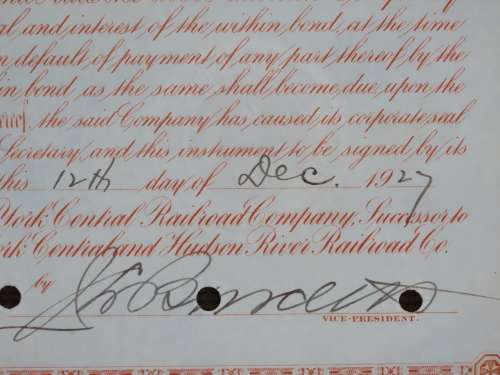 al and interest of the within bond, at the time
n default of payment of any part thereof by the
in bond as the same shall become due, upon the
reof, the said Company has caused its corporate seal
Secretary, and this instrument to be signed by its
this 12th day of Dec. 1927
York Central Railroad Company, Successor to
rk Central and Hudson River Railroad Co.
by
VICE-PRESIDENT.